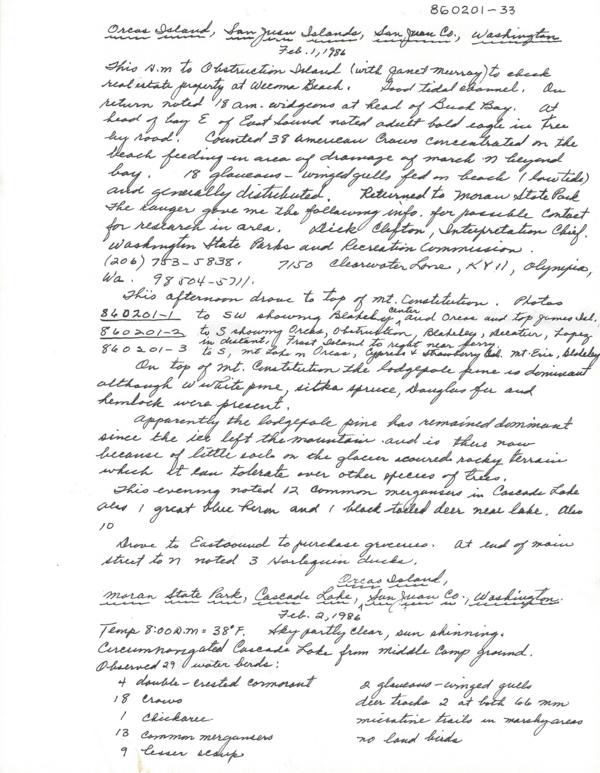 860201-33
Orcas Island, San Juan Islands, San Juan Co., Washington
Feb. 1, 1986
This A.M to Obstruction Island (with Janet Murray) to check
real estate property at Wecoma Beach. Good tidal channel. On
return noted 18 am. widgeons at head of Buck Bay. At
head of bay E of East Sound noted adult bald eagle in tree
by road. Counted 38 American Crows concentrated on the
beach feeding in area of drainage of marsh N beyond
bay. 18 glaucous-winged gulls fed on beach (low tide)
and generally distributed. Returned to Moran State Park
The ranger gave me the following info. for possible contact
for research in area. Dick Clifton, Interpretation Chief.
Washington State Parks and Recreation Commission.
(206) 753-5838. 7150 Clearwater Lane, KY 11, Olympia,
Wa. 98504-5711.
This afternoon drove to top of Mt. Constitution. Photos
860201-1 to SW showing Blakeley center and Orcas and top James Isl.
860201-2 to S showing Orcas, Obstruction, Blakeley, Decatur, Lopez
in distant, Frost Island to right near ferry.
860201-3 to S, Mt Lake N Orcas, Cypress & Strawberry Isl. Mt. Erie, Blakeley
On top of Mt. Constitution the lodgepole pine is dominant
although W white pine, sitka spruce, Douglas fir and
hemlock were present.
Apparently the lodgepole pine has remained dominant
since the ice left the mountain and is there now
because of little soils on the glacier scoured rocky terrain
which it can tolerate over other species of trees.
This evening noted 12 common mergansers in Cascade Lake
also 1 great blue heron and 1 black tailed deer near lake. Also
10
Drove to Eastsound to purchase groceries. At end of main
street to N noted 3 Harlequin ducks.
Orcas Island,
Moran State Park, Cascade Lake, San Juan Co., Washington.
Feb. 2, 1986
Temp 8:00 A.M = 38°F. Sky partly clear, sun shinning.
Circumnavigated Cascade Lake from Middle Camp ground.
Observed 29 water birds:
4 double-crested cormorant
18 crows
1 chickaree
13 common mergansers
9 lesser scaup
2 glaucous-winged gulls
deer tracks 2 at both 66 mm
microtine trails in marshy areas
no land birds